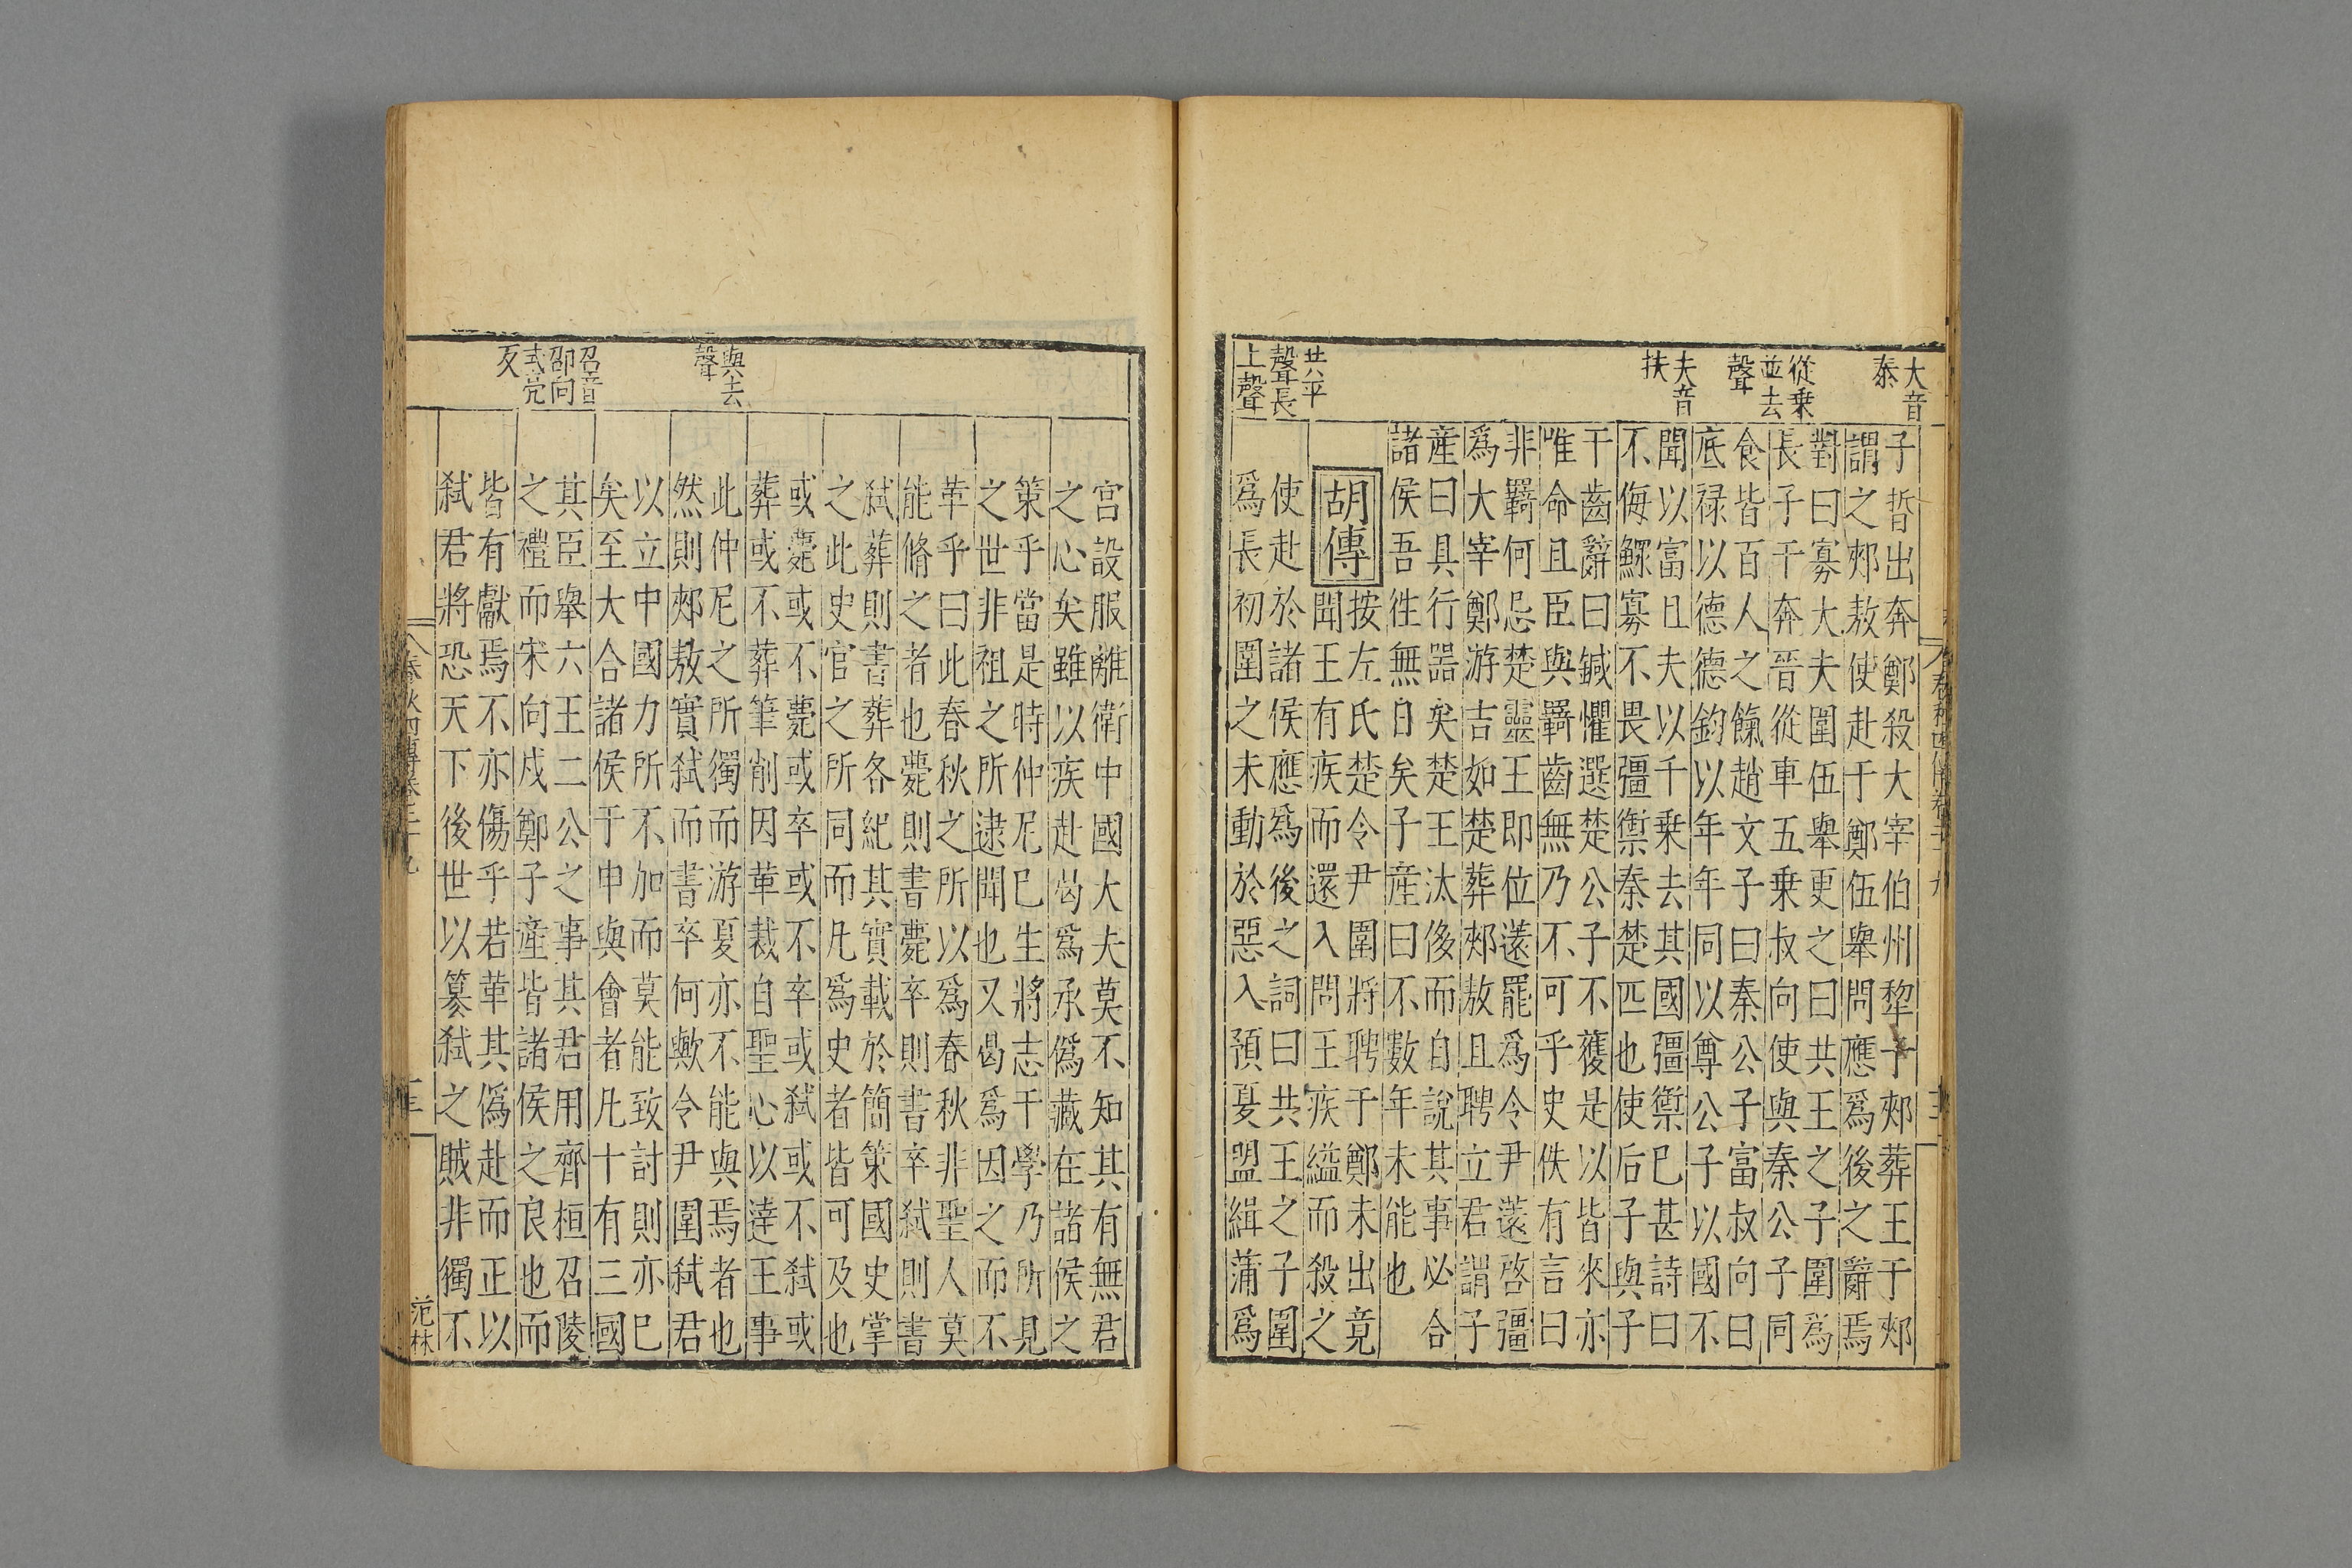 大音
泰
從乗
並去
聲
夫音
扶
共平
聲長
上聲
子晳出奔鄭殺大宰伯州犂于郟葬王于郟
謂之郟敖使赴于鄭伍舉問應爲後之辭焉
對曰寡大夫圍伍舉更之曰共王之子圍爲
長子干奔晉從車五乗叔向使與秦公子同
食皆百人之餼趙文子曰秦公子富叔向曰
底禄以德德鈞以年年同以尊公子以國不
聞以富且夫以千乗去其國彊禦已甚詩曰
不侮鰥寡不畏彊禦秦楚匹也使后子與子
干齒辭曰鍼懼選楚公子不獲是以皆來亦
唯命且臣與羇齒無乃不可乎史佚有言曰
非羇何忌楚靈王即位薳罷爲令尹薳啓彊
爲大宰鄭游吉如楚葬郟敖且聘立君謂子
産曰具行器矣楚王汰侈而自說其事必合
諸侯吾徃無日矣子産曰不數年未能也
胡傳
按左氏楚令尹圍將聘于鄭未出竟
聞王有疾而還入問王疾縊而殺之
使赴於諸侯應爲後之詞曰共王之子圍
爲長初圍之未動於惡入預夏盟緝蒲爲
春秋四傳卷二十九
三
與去
聲
召音
邵向
式亮
反
宫設服離衛中國大夫莫不知其有無君
之心矣雖以疾赴曷爲承僞藏在諸侯之
策乎當是時仲尼已生將志于學乃所見
之世非祖之所逮聞也又曷爲因之而不
革乎曰此春秋之所以爲春秋非聖人莫
能脩之者也薨則書薨卒則書卒弑則書
弑葬則書葬各紀其實載於簡策國史掌
之此史官之所同而凡爲史者皆可及也
或薨或不薨或卒或不卒或弑或不弑或
葬或不葬筆削因革裁自聖心以達王事
此仲尼之所獨而游夏亦不能與焉者也
然則郟敖實弑而書卒何歟令尹圍弑君
以立中國力所不加而莫能致討則亦已
矣至大合諸侯于申與會者凡十有三國
其臣舉六王二公之事其君用齊桓召陵
之禮而宋向戌鄭子産皆諸侯之良也而
皆有獻焉不亦傷乎若革其僞赴而正以
弑君將恐天下後世以簒弑之賊非獨不
春秋四傳卷二十九
三
范林